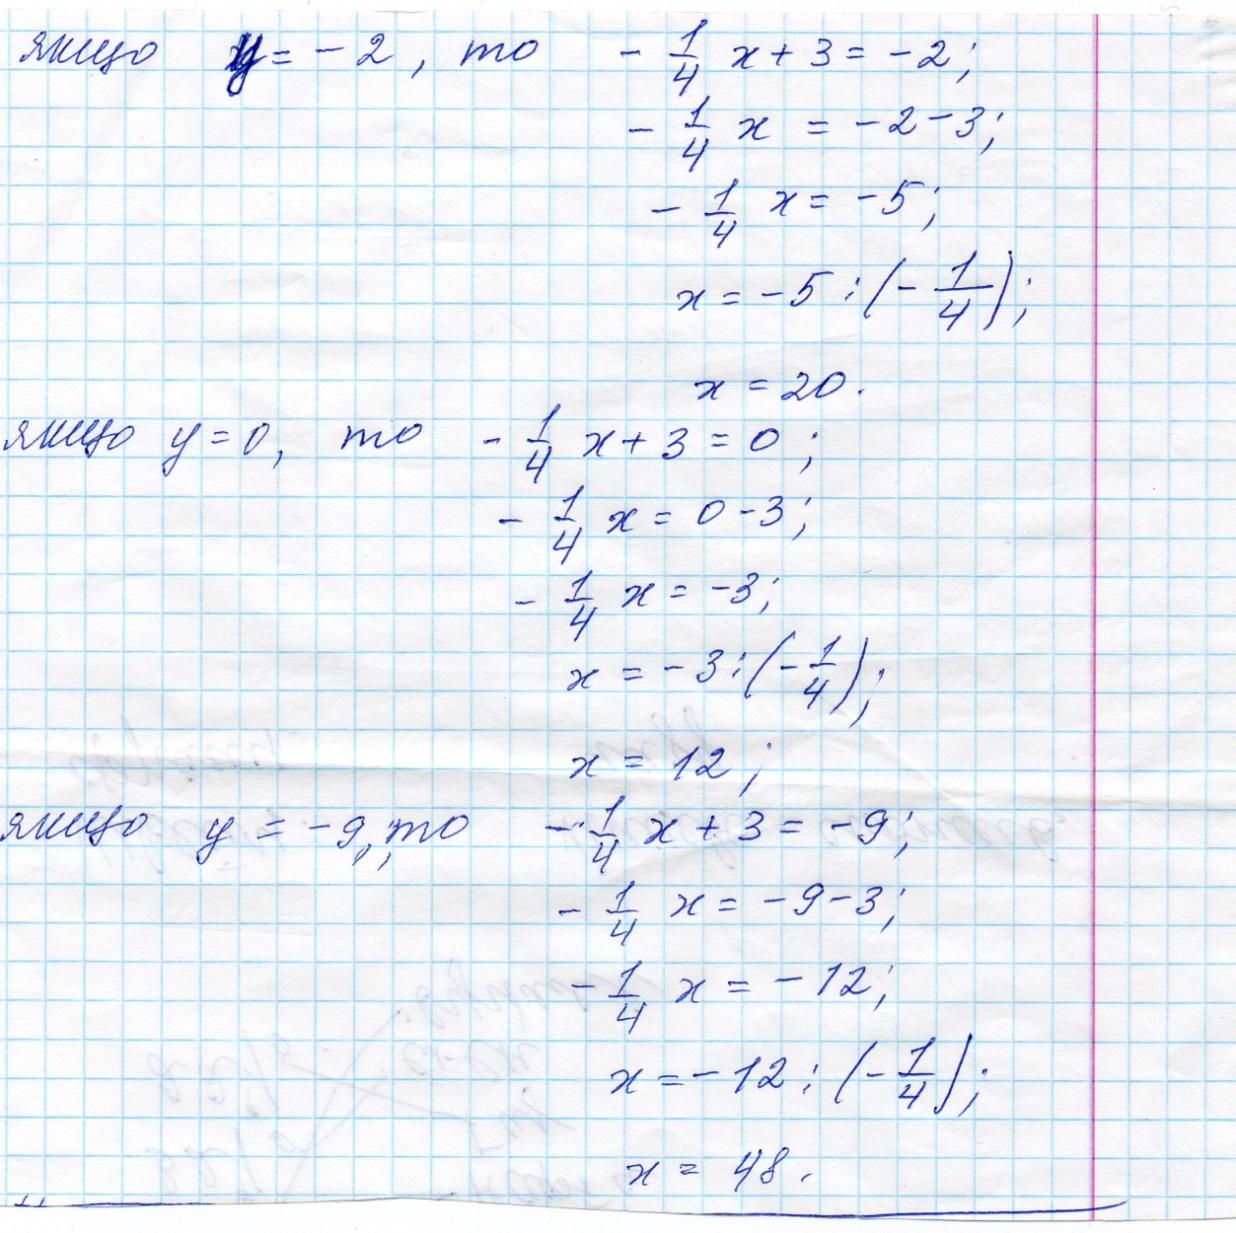 якщо y = -2, то -1/4 x + 3 = -2;
-1/4 x = -2-3;
-1/4 x = -5;
x = -5 : (-1/4);
x = 20.
якщо y = 0, то -1/4 x + 3 = 0;
-1/4 x = 0-3;
-1/4 x = -3;
x = -3 : (-1/4);
x = 12;
якщо y = -9, то -1/4 x + 3 = -9;
-1/4 x = -9-3;
-1/4 x = -12;
x = -12 : (-1/4);
x = 48.